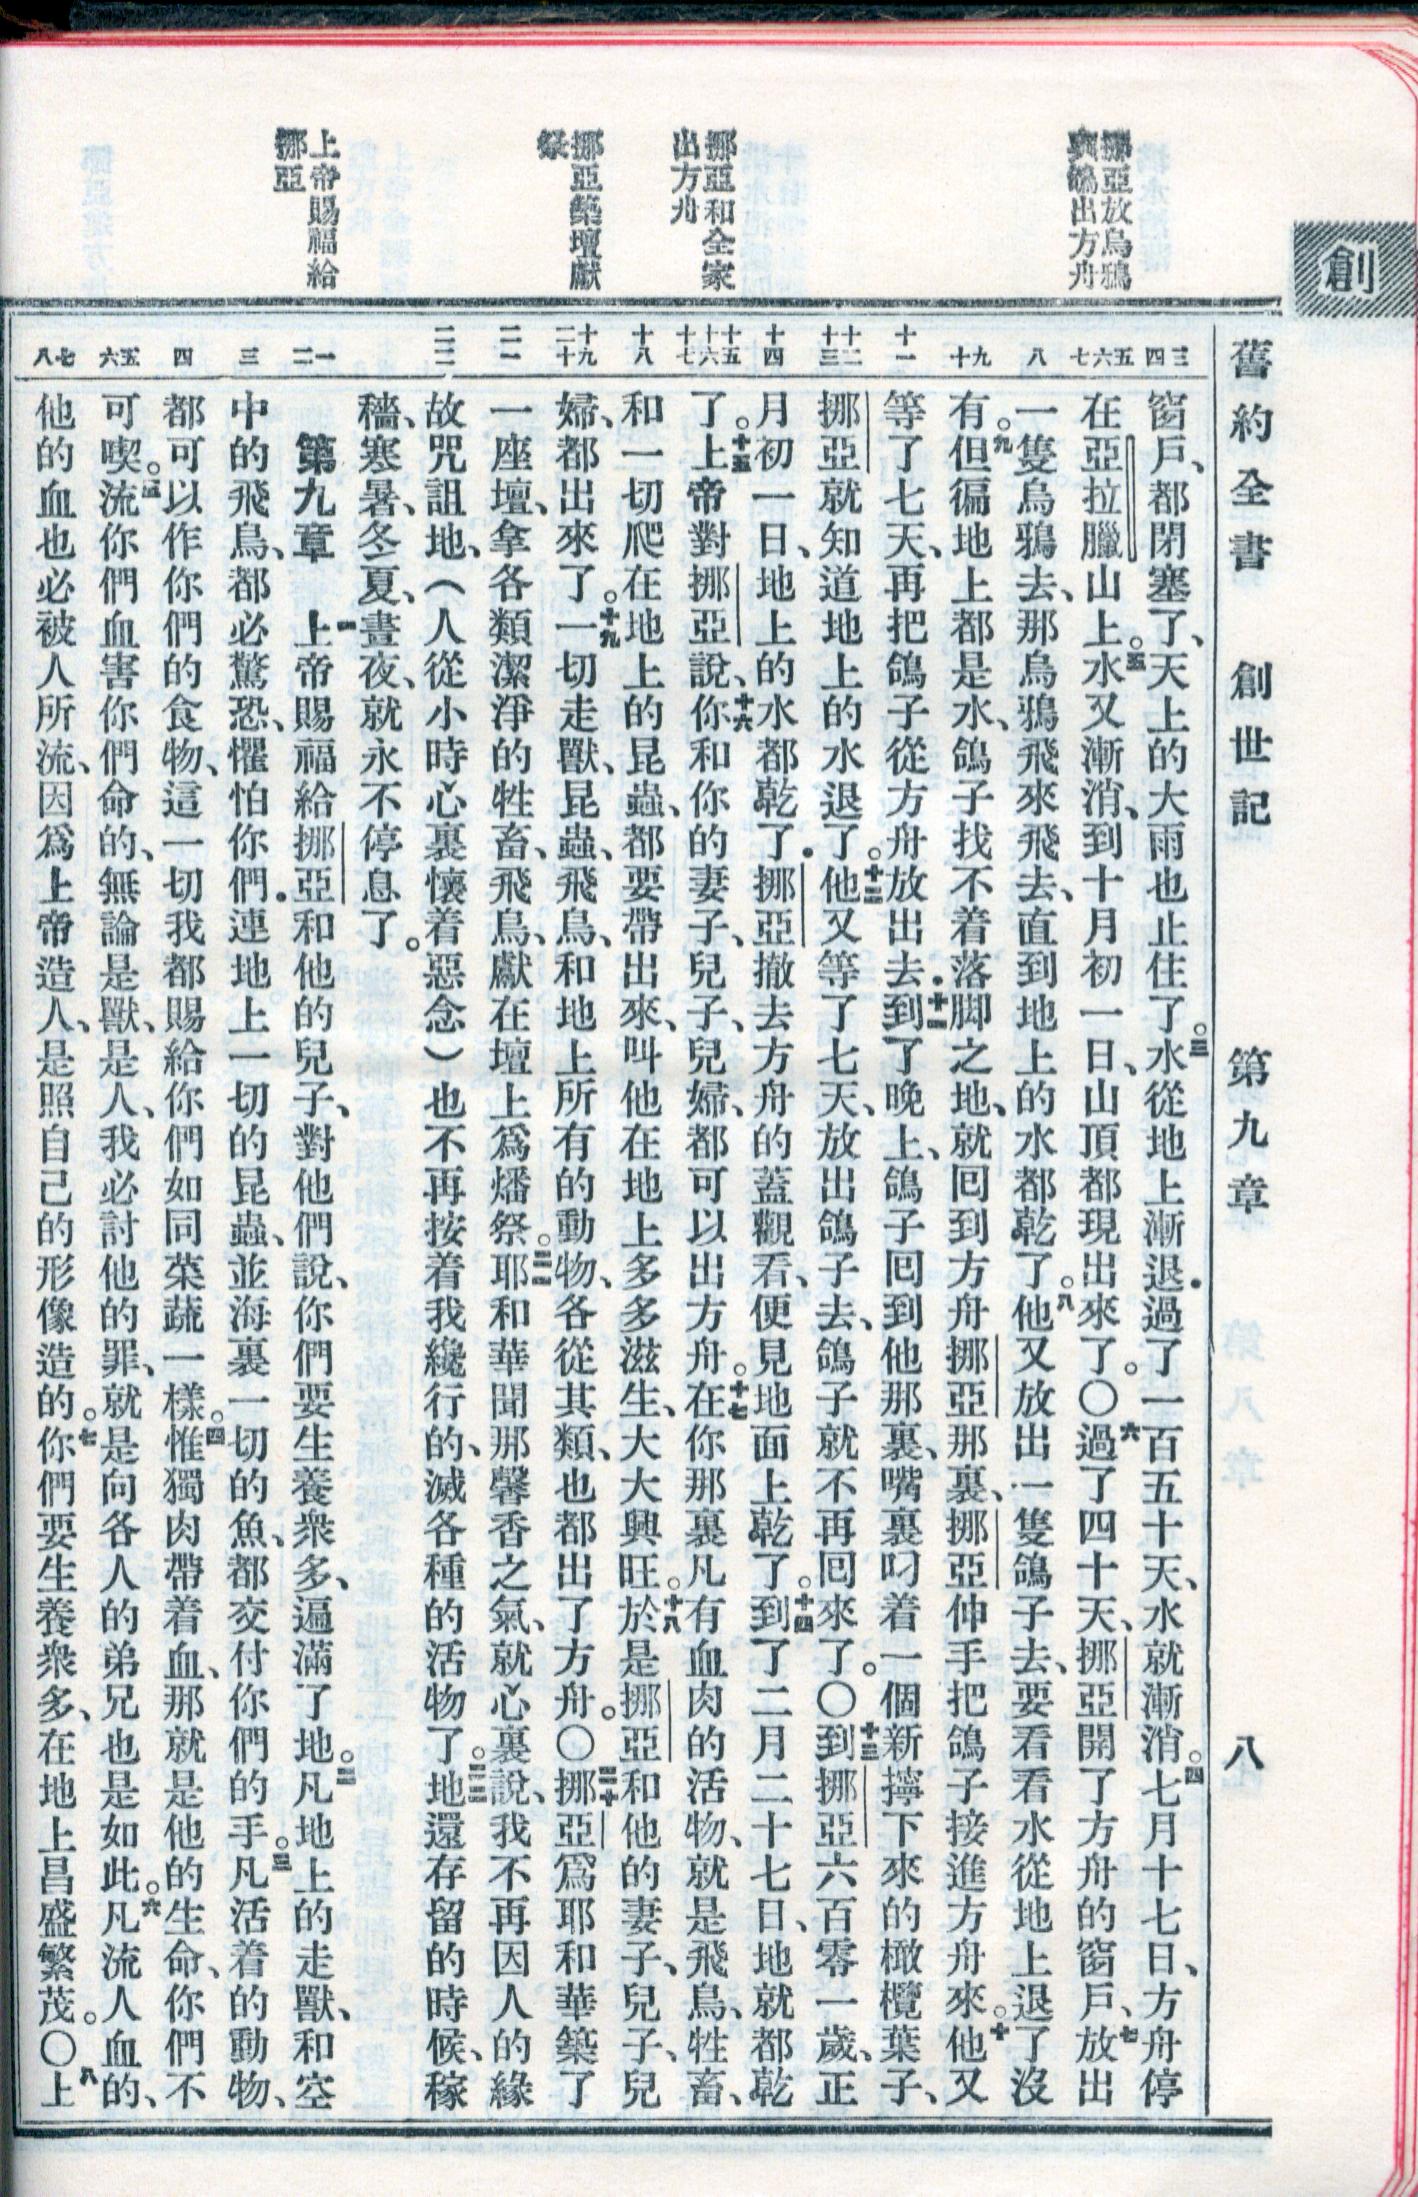 創
舊約全書 創世記 第九章 八
挪亞放烏鴉
與鴿出方舟
挪亞和全家
出方舟
挪亞築壇獻
祭
上帝賜福給
挪亞
三 四
五 六 七
八
九 十
十一
十二 十三
十四
十五 十六 十七
十八
十九 二十
二一
二二
一 二
三
四
五 六
七 八
窗戶、都閉塞了、天上的大雨也止住了。三水從地上漸退·過了一百五十天、水就漸消。四七月十七日、方舟停
在亞拉臘山上。五水又漸消、到十月初一日、山頂都現出來了。〇六過了四十天、挪亞開了方舟的窗戶、七放出
一隻烏鴉去、那烏鴉飛來飛去、直到地上的水都乾了。八他又放出一隻鴿子去、要看看水從地上退了沒
有。九但徧地上都是水、鴿子找不着落脚之地、就回到方舟挪亞那裏、挪亞伸手把鴿子接進方舟來。十他又
等了七天、再把鴿子從方舟放出去·十一到了晚上、鴿子回到他那裏、嘴裏叼着一個新擰下來的橄欖葉子、
挪亞就知道地上的水退了。十二他又等了七天、放出鴿子去、鴿子就不再回來了。〇十三到挪亞六百零一歲、正
月初一日、地上的水都乾了·挪亞撤去方舟的蓋觀看、便見地面上乾了。十四到了二月二十七日、地就都乾
了。十五上帝對挪亞說、十六你和你的妻子、兒子、兒婦、都可以出方舟。十七在你那裏凡有血肉的活物、就是飛鳥、牲畜、
和一切爬在地上的昆蟲、都要帶出來、叫他在地上多多滋生、大大興旺。十八於是挪亞和他的妻子、兒子、兒
婦、都出來了。十九一切走獸、昆蟲、飛鳥、和地上所有的動物、各從其類、也都出了方舟。〇二十挪亞爲耶和華築了
一座壇、拿各類潔淨的牲畜、飛鳥、獻在壇上爲燔祭。二一耶和華聞那馨香之氣、就心裏說、我不再因人的緣
故咒詛地、（人從小時心裏懷着惡念）也不再按着我纔行的、滅各種的活物了。二二地還存留的時候、稼
穡、寒暑、冬夏、晝夜、就永不停息了。
第九章 一上帝賜福給挪亞和他的兒子、對他們說、你們要生養衆多、遍滿了地。二凡地上的走獸、和空
中的飛鳥、都必驚恐、懼怕你們·連地上一切的昆蟲、並海裏一切的魚、都交付你們的手。三凡活着的動物、
都可以作你們的食物、這一切我都賜給你們如同菜蔬一樣。四惟獨肉帶着血、那就是他的生命、你們不
可喫。五流你們血害你們命的、無論是獸、是人、我必討他的罪、就是向各人的弟兄也是如此。六凡流人血的、
他的血也必被人所流、因爲上帝造人、是照自己的形像造的。七你們要生養衆多、在地上昌盛繁茂。〇八上